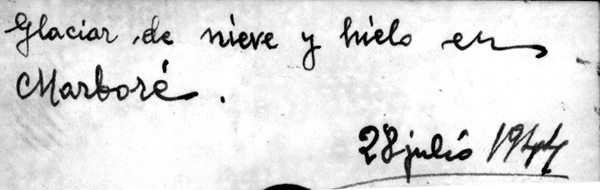 Glaciar de nieve y hielo en
Marboré.
28 julio 1944